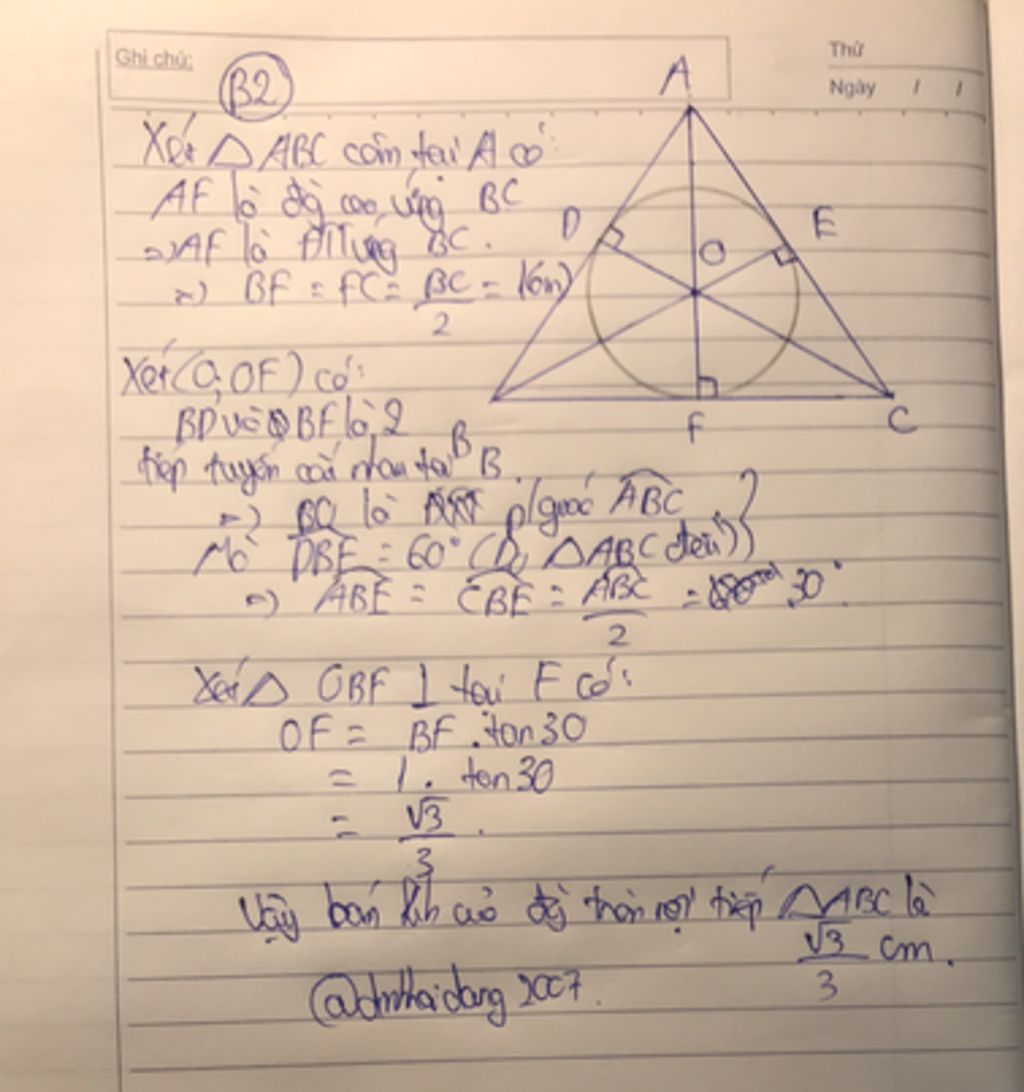 Ghi chú:
Thứ
Ngày / /
B2
A
Xét △ ABC cân tại A có:
AF là đg cao ứng BC
D
E
=> AF là ĐTT ứng BC.
O
=> BF = FC = BC/2 = 1(cm)
Xét (O; OF) có:
BD và BF là 2
B
F
C
tiếp tuyến cắt nhau tại B.
=> BO là p/giác ABC
Mà DBF = 60° (D, △ABC đều)
=> ABE = CBE = ABC/2 = 30°.
Xét △ OBF ⊥ tại F có:
OF = BF . tan30
= 1 . tan30
= √3/3 .
Vậy bán kính của đg tròn nội tiếp △ABC là
√3/3 cm.
@dmhaidang2007.